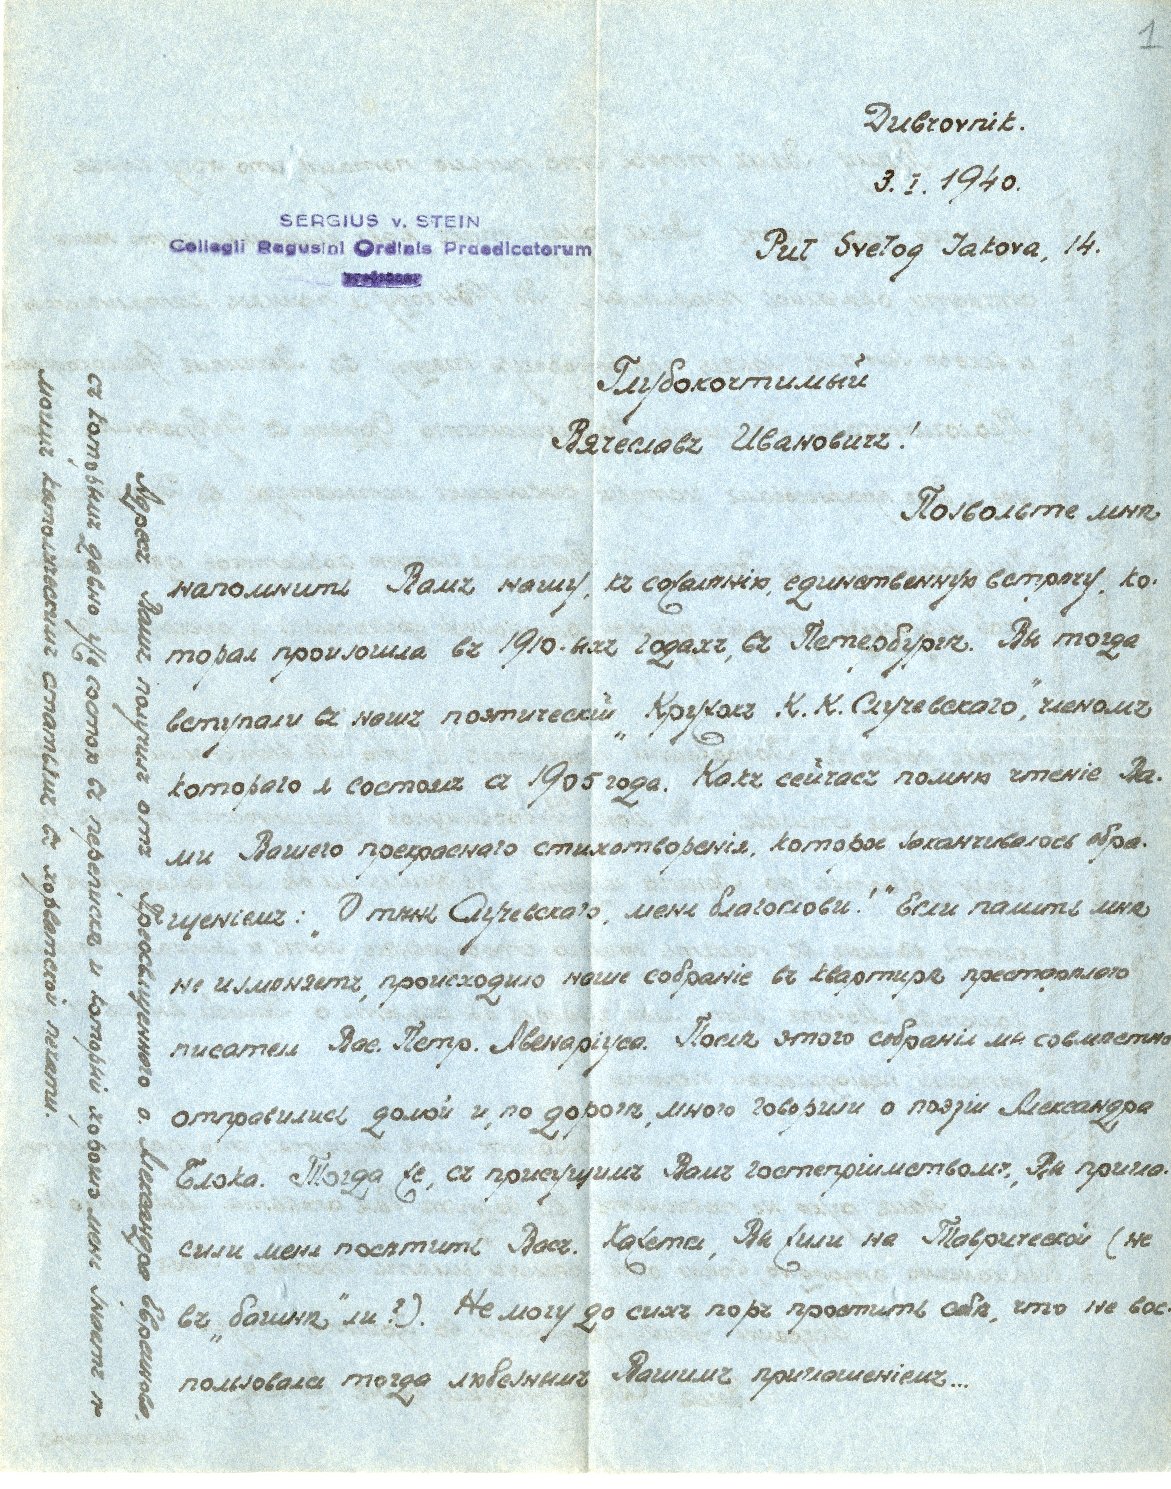 1
Dubrovnik.
3. I. 1940.
SERGIUS v. STEIN
Collegii Ragusini Ordinis Praedicatorum
Put Svetog Jakova, 14.
Глубокочтимый
Вячеславъ Ивановичъ!
Позвольте мнѣ
напомнить Вамъ нашу, къ сожалѣнію, единственную встрѣчу, ко-
торая произошла въ 1910-ыхъ годахъ, въ Петербургѣ. Вы тогда
вступали въ нашъ поэтическій „Кружокъ К. К. Случевскаго", членомъ
котораго я состоялъ съ 1905 года. Какъ сейчасъ помню чтеніе Ва-
ми Вашего прекраснаго стихотворенія, которое заканчивалось обра-
щеніемъ: „О тѣнь Случевскаго, меня благослови!" Если память мнѣ
не измѣняетъ, происходило наше собраніе въ квартирѣ престарѣлаго
писателя Вас. Петр. Авенаріуса. Послѣ этого собранія мы совмѣстно
отправились домой и, по дорогѣ, много говорили о поэзіи Александра
Блока. Тогда же, съ присущимъ Вамъ гостепріимствомъ, Вы пригла-
сили меня посѣтить Васъ. Кажется, Вы жили на Таврической (не
въ „башнѣ" ли?). Не могу до сихъ поръ простить себѣ, что не вос-
пользовался тогда любезнымъ Вашимъ приглашеніемъ...
Адресъ Вашъ получилъ отъ Преосвященнаго о. Александра Евреинова,
съ которымъ давно уже состою въ перепискѣ и который хорошо меня знаетъ по
моимъ католическимъ статьямъ въ хорватской печати.